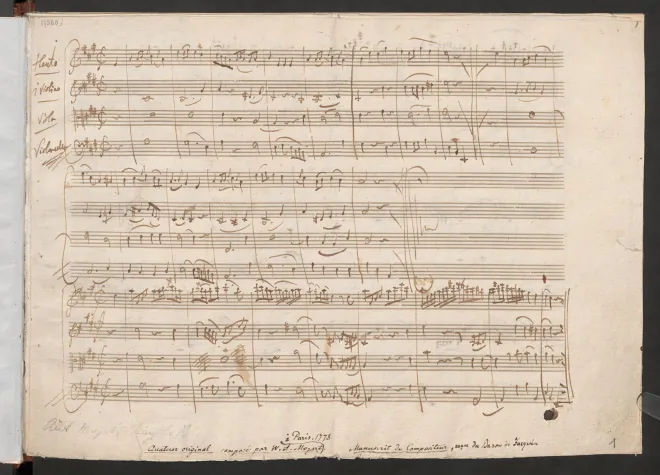 Flauto
i Violino
Viola
Violoncello
à Paris. 1778.
Quatuor original composé par W. A. Mozart. Manuscrit du Compositeur, reçu du Baron de Jacquin
1